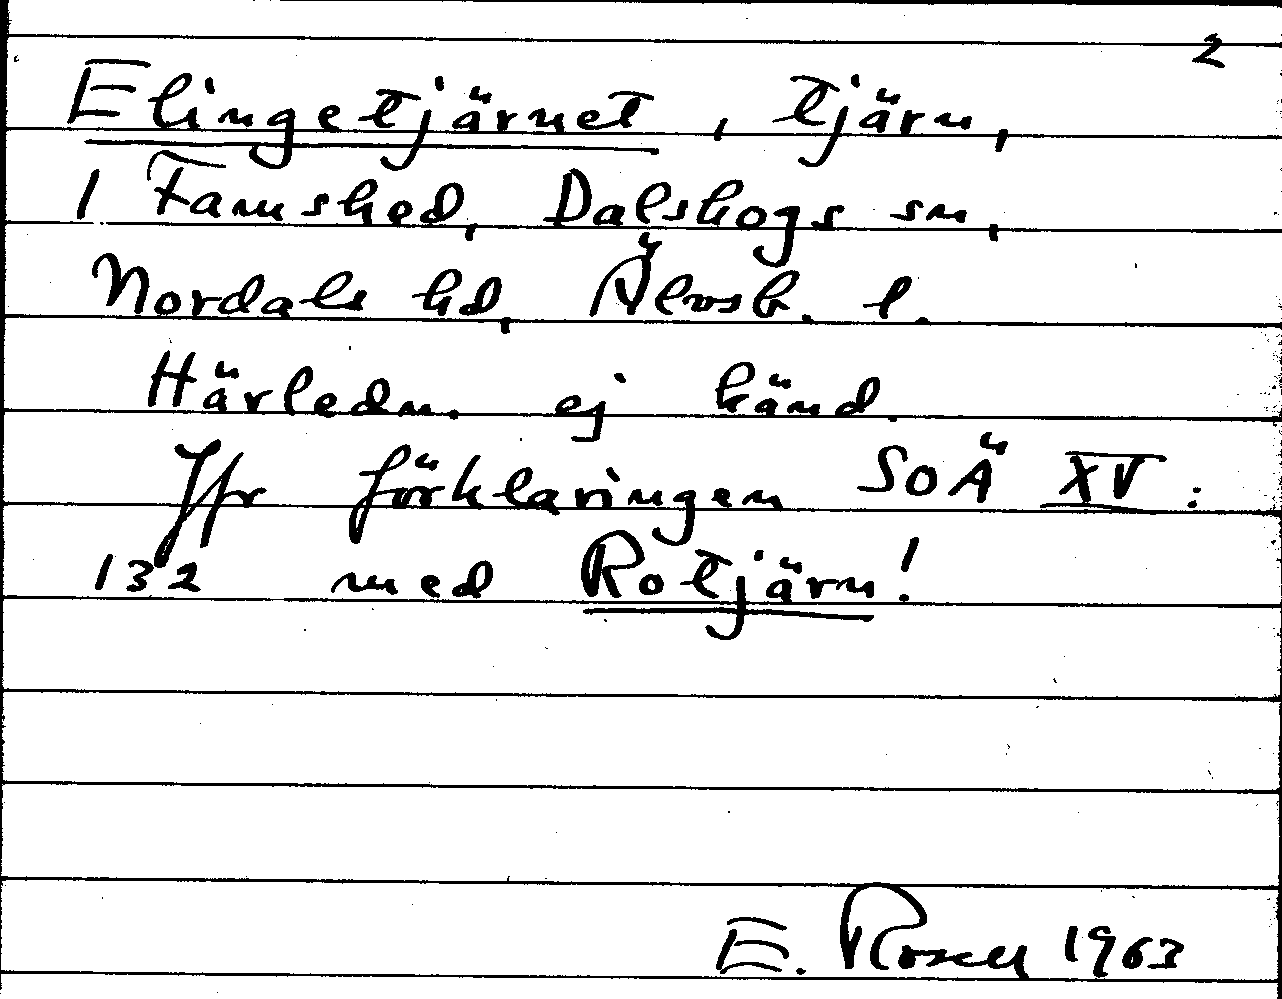 2
Elingetjärnet, tjärn,
1 Famshed, Dalskogs sn,
Nordals hd, Älvsb. l.
Härledn. ej känd.
Jfr förklaringen SOÄ XV:
132 med Rotjärn!
E. Rosell 1963